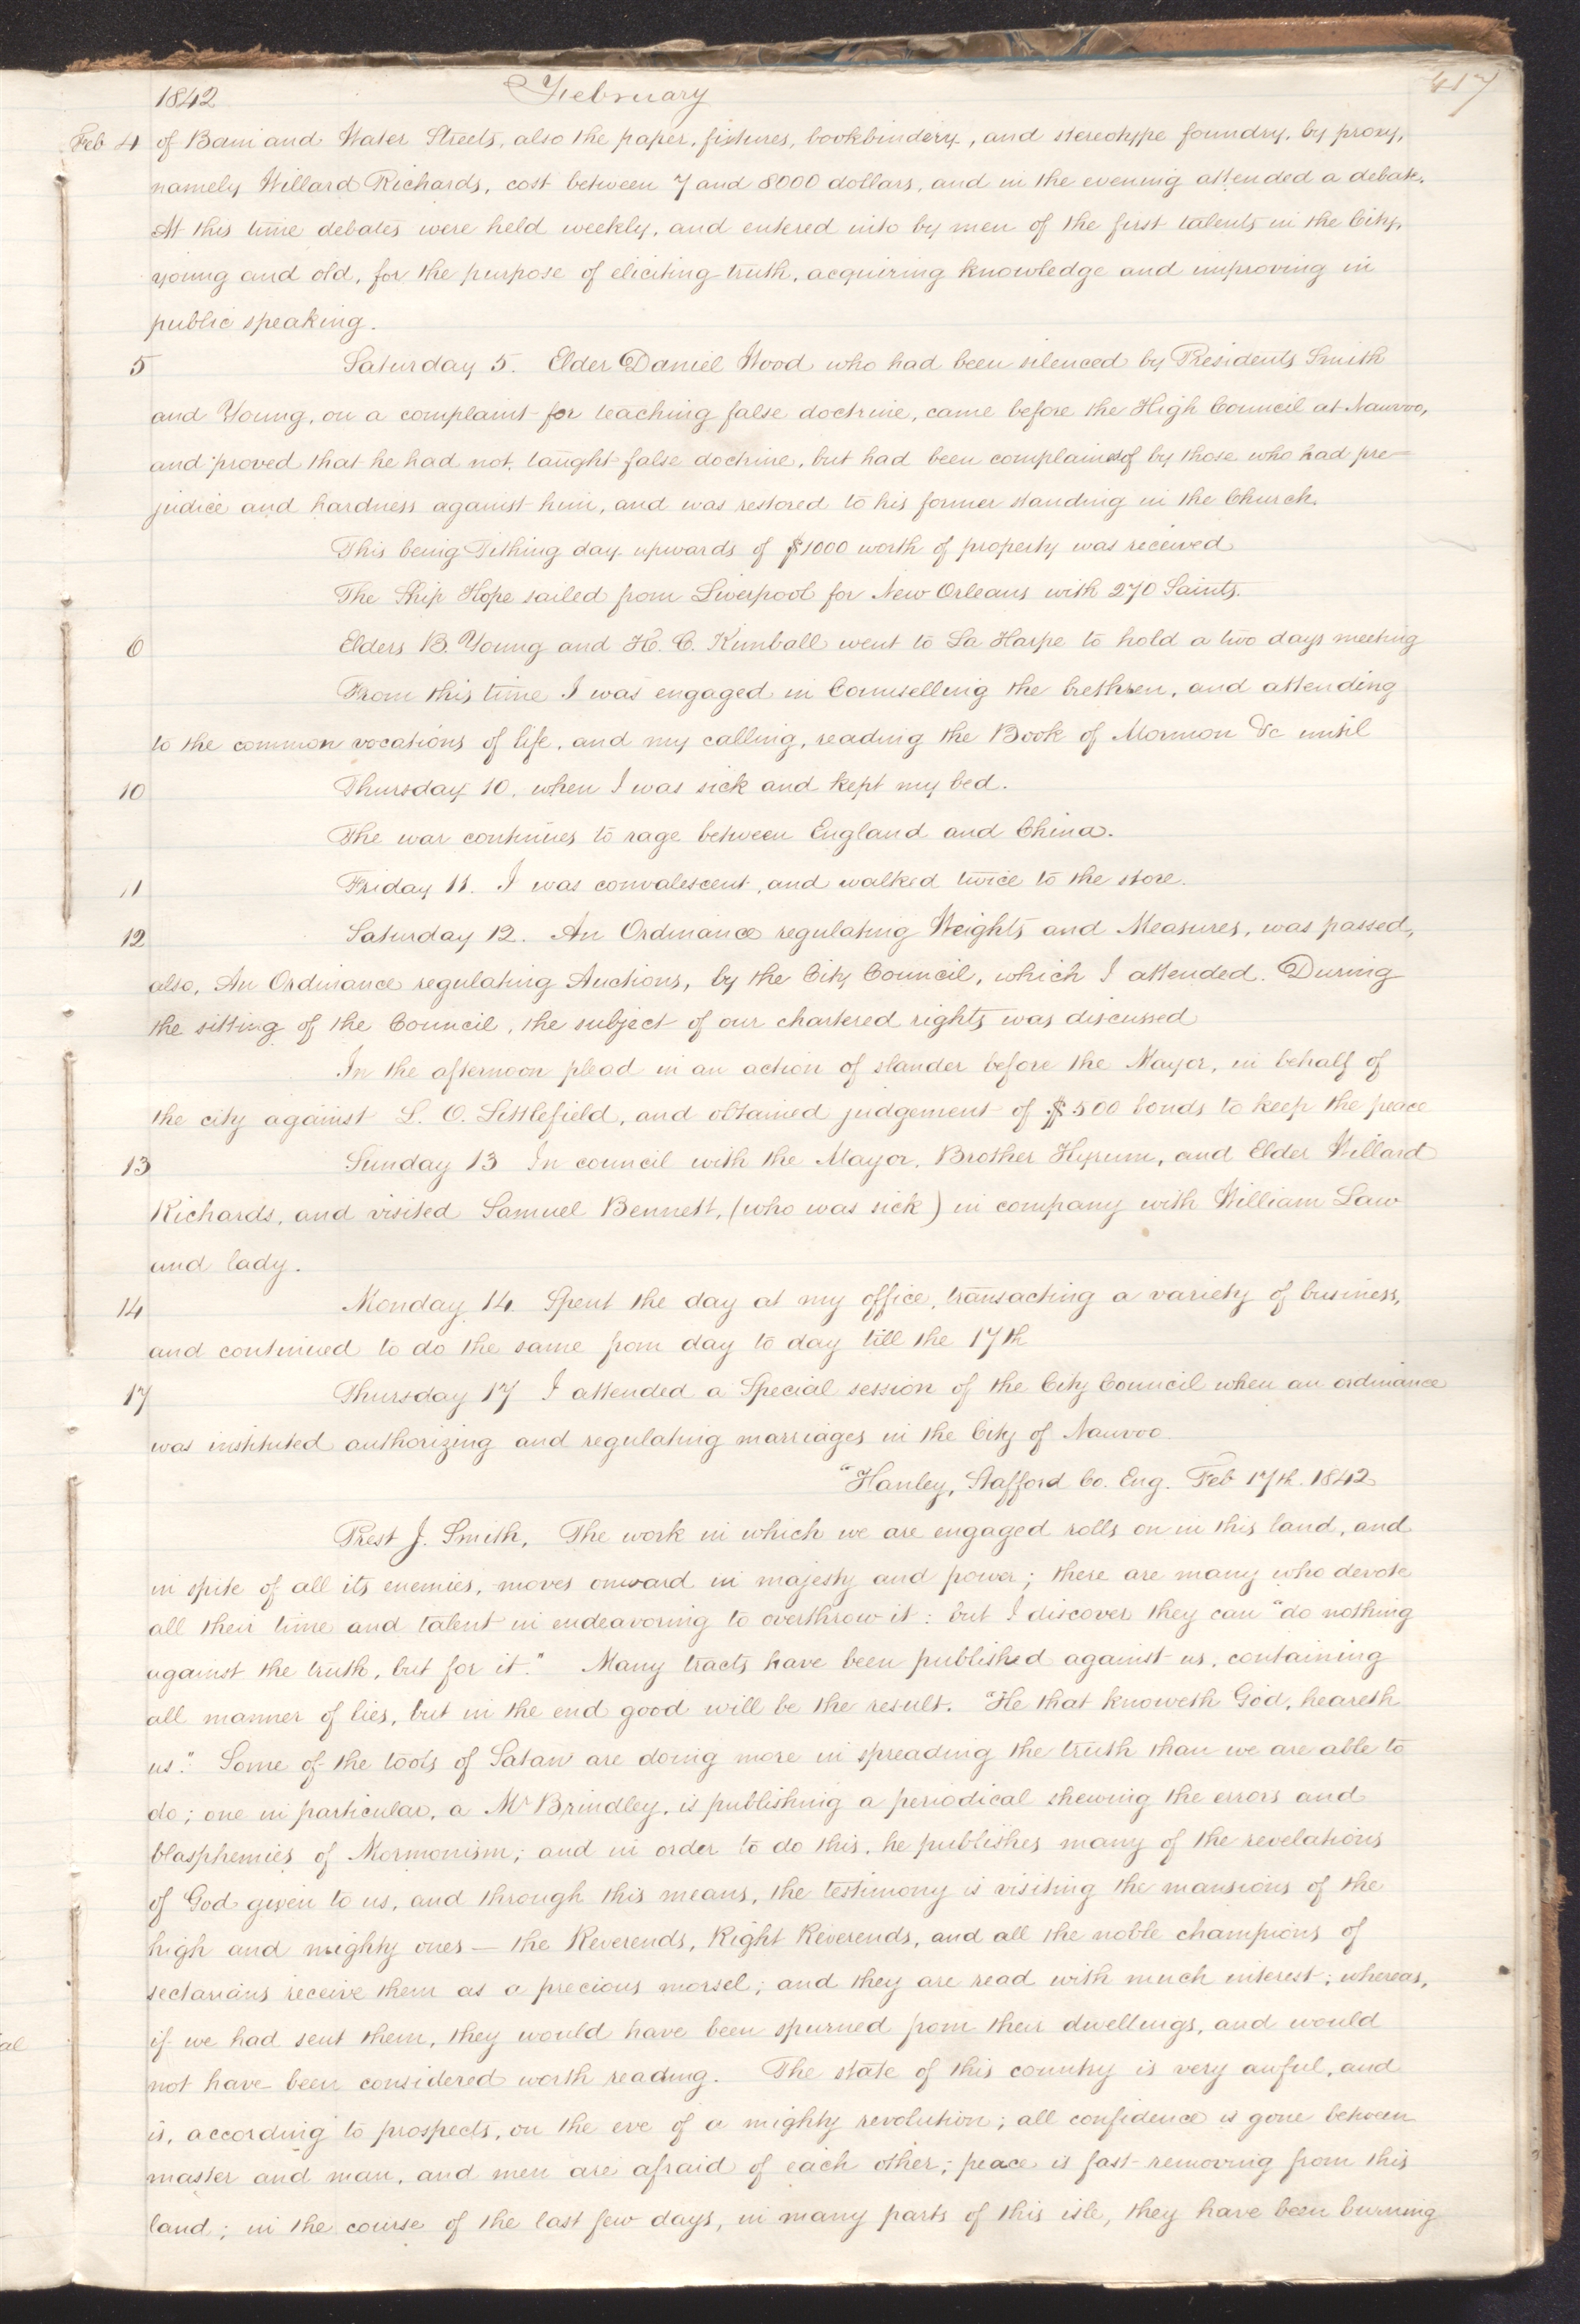 1842 February 417
Feb 4 of Bain and Water Streets, also the paper, fixtures, bookbindery, and stereotype foundry, by proxy,
namely Willard Richards, cost between 7 and 8000 dollars, and in the evening attended a debate.
At this time debates were held weekly, and entered into by men of the first talents in the City,
young and old, for the purpose of eliciting truth, acquiring knowledge and improving in
public speaking.
5 Saturday 5. Elder Daniel Wood who had been silenced by Presidents Smith
and Young, on a complaint for teaching false doctrine, came before the High Council at Nauvoo,
and proved that he had not taught false doctrine, but had been complained of by those who had pre=
judice and hardness against him, and was restored to his former standing in the Church.
This being Tithing day upwards of $1000 worth of property was received
The Ship Hope sailed from Liverpool for New Orleans with 270 Saints.
6 Elders B. Young and H. C. Kimball went to La Harpe to hold a two days meeting
From this time I was engaged in Counselling the brethren, and attending
to the common vocations of life, and my calling, reading the Book of Mormon &c until
10 Thursday 10, when I was sick and kept my bed.
The war continues to rage between England and China.
11 Friday 11. I was convalescent, and walked twice to the store.
12 Saturday 12. An Ordinance regulating Weights and Measures, was passed,
also, An Ordinance regulating Auctions, by the City Council, which I attended. During
the sitting of the Council, the subject of our chartered rights was discussed
In the afternoon plead in an action of slander before the Mayor, in behalf of
the city against L. O. Littlefield, and obtained judgement of $500 bonds to keep the peace
13 Sunday 13 In council with the Mayor, Brother Hyrum, and Elder Willard
Richards, and visited Samuel Bennett, (who was sick) in company with William Law
and lady.
14 Monday 14 Spent the day at my office, transacting a variety of business,
and continued to do the same from day to day till the 17th
17 Thursday 17 I attended a Special session of the City Council when an ordinance
was instituted authorizing and regulating marriages in the City of Nauvoo
"Hanley, Stafford Co. Eng. Feb 17th. 1842
Prest J. Smith, The work in which we are engaged rolls on in this land, and
in spite of all its enemies, moves onward in majesty and power; there are many who devote
all their time and talent in endeavoring to overthrow it: but I discover they can "do nothing
against the truth, but for it." Many tracts have been published against us, containing
all manner of lies, but in the end good will be the result. "He that knoweth God, heareth
us." Some of the tools of Satan are doing more in spreading the truth than we are able to
do; one in particular, a Mr Brindley, is publishing a periodical shewing the errors and
blasphemies of Mormonism; and in order to do this, he publishes many of the revelations
of God given to us, and through this means, the testimony is visiting the mansions of the
high and mighty ones — the Reverends, Right Reverends, and all the noble champions of
sectarians receive them as a precious morsel; and they are read with much interest; whereas,
if we had sent them, they would have been spurned from their dwellings, and would
not have been considered worth reading. The state of this country is very awful, and
is, according to prospects, on the eve of a mighty revolution; all confidence is gone between
master and man, and men are afraid of each other; peace is fast removing from this
land; in the course of the last few days, in many parts of this isle, they have been burning